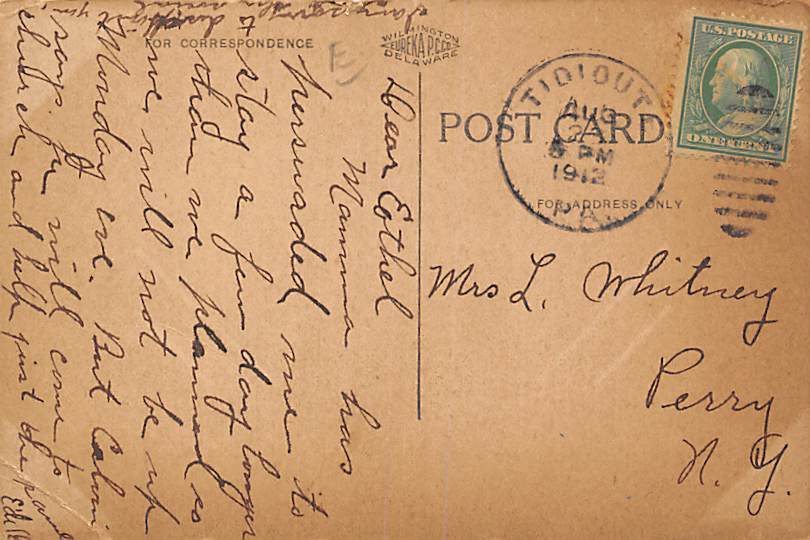 FOR CORRESPONDENCE
WILMINGTON
EUREKA P.C.CO.
DELAWARE
E
POST CARD
FOR ADDRESS ONLY
TIDIOUTE
AUG
5 PM
1912
PA.
U.S. POSTAGE
ONE CENT
Mrs L. Whitney
Perry
N. Y.
Dear Eethel
Mamma has
purswaded me to
stay a few days longer
than we planned so
we will not be up
Monday eve. But Calvin
says he will come to
church and help just the